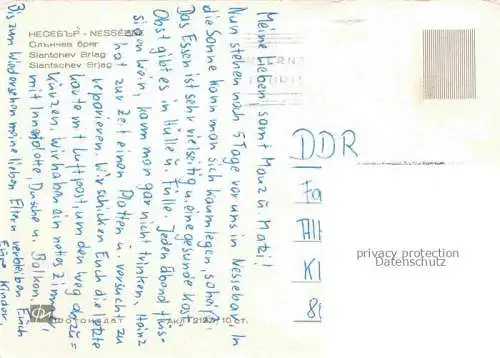 НЕСЕБЪР - NESSEBAR
Слънчев бряг
Slantchev Briag
Slantschev Brjag
Meine Lieben, samt Mauz u. Matzi!
Nun stehen noch 5 Tage vor uns in Nessebar. In
die Sonne kann man sich kaum legen, so heiß.
Das Essen ist sehr vielseitig u. eine gesunde Kost.
Obst gibt es in Hülle u. Fülle. Jeden Abend flüs-
sigen Wein, kann man gar nicht trinken. Heinz
hat zur Zeit einen Platten u. versucht zu
reparieren. Wir schicken Euch die letzte
Karte mit Luftpost, um den Weg abzu=
kürzen. Wir haben ein nettes Zimmer
mit Innentoilette, Dusche u. Balkon.
Bis zum Wiedersehen meine lieben Eltern verbleiben Euch
Eure Kinder.
DDR
privacy protection
Datenschutz
Фотоиздат